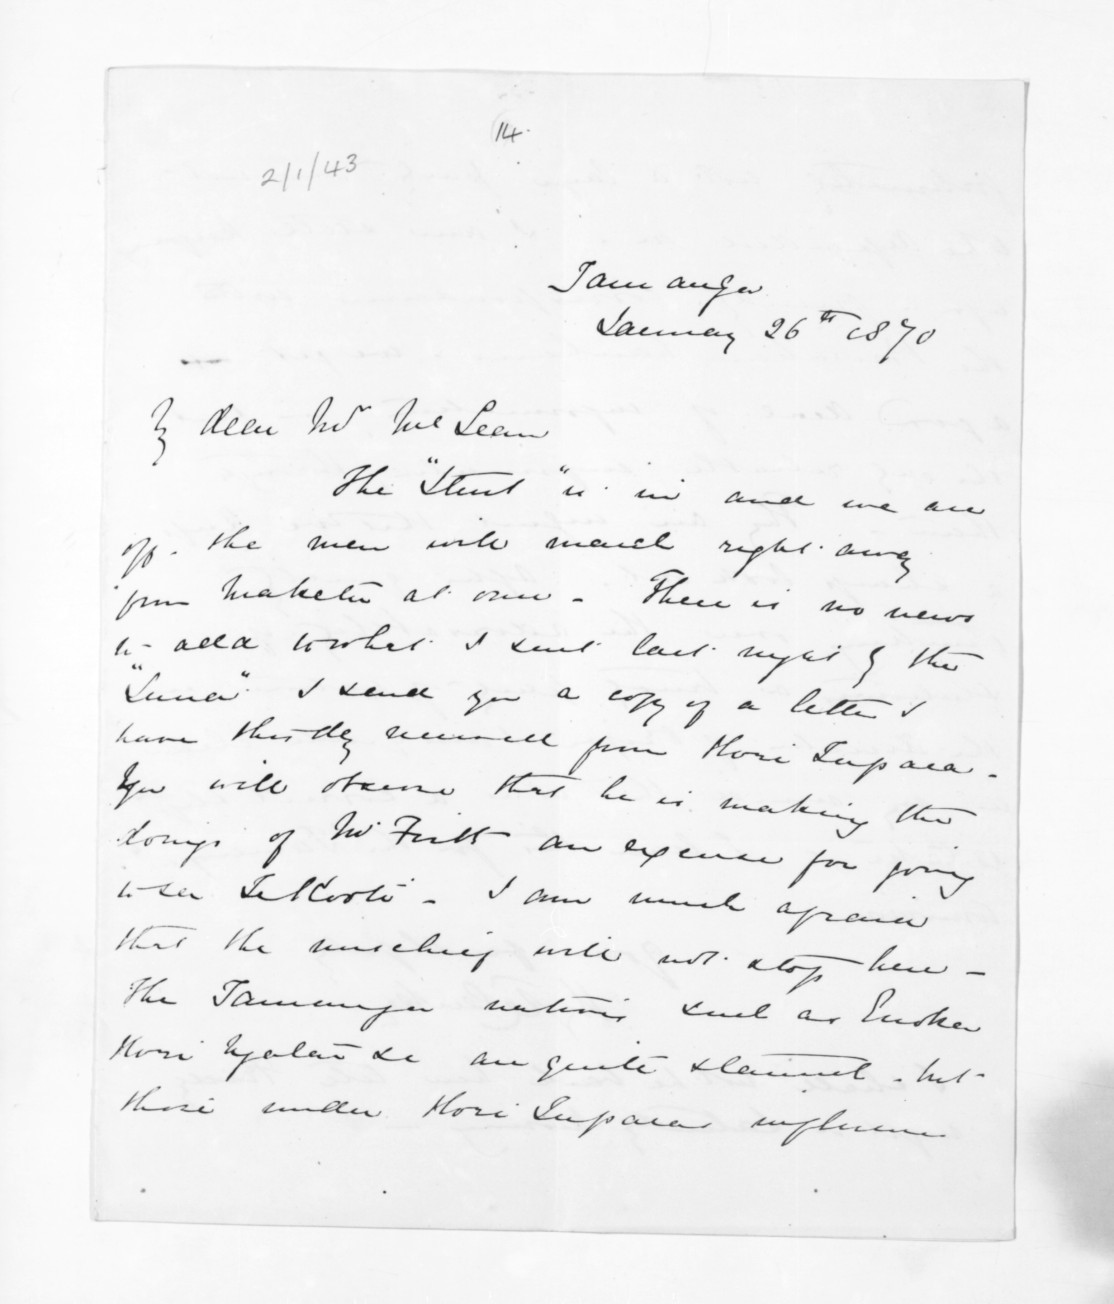 14.
2/1/43
Tauranga
January 26th 1870
My dear Mr McLean
The "Sturt" is in and we are
off. the men will march right away
from Maketu at once - There is no news
to add to what I sent last night by the
"Luna" I send you a copy of a letter I
have this day received from Hori Tupaea -
You will observe that he is making the
doings of Mr Firth an excuse for going
to see Te Kooti - I am much afraid
that the mischief will not stop here -
The Tauranga natives such as Enoka
Hori Ngatai &c are quite staunch - but
those under Hori Tupaeas influence